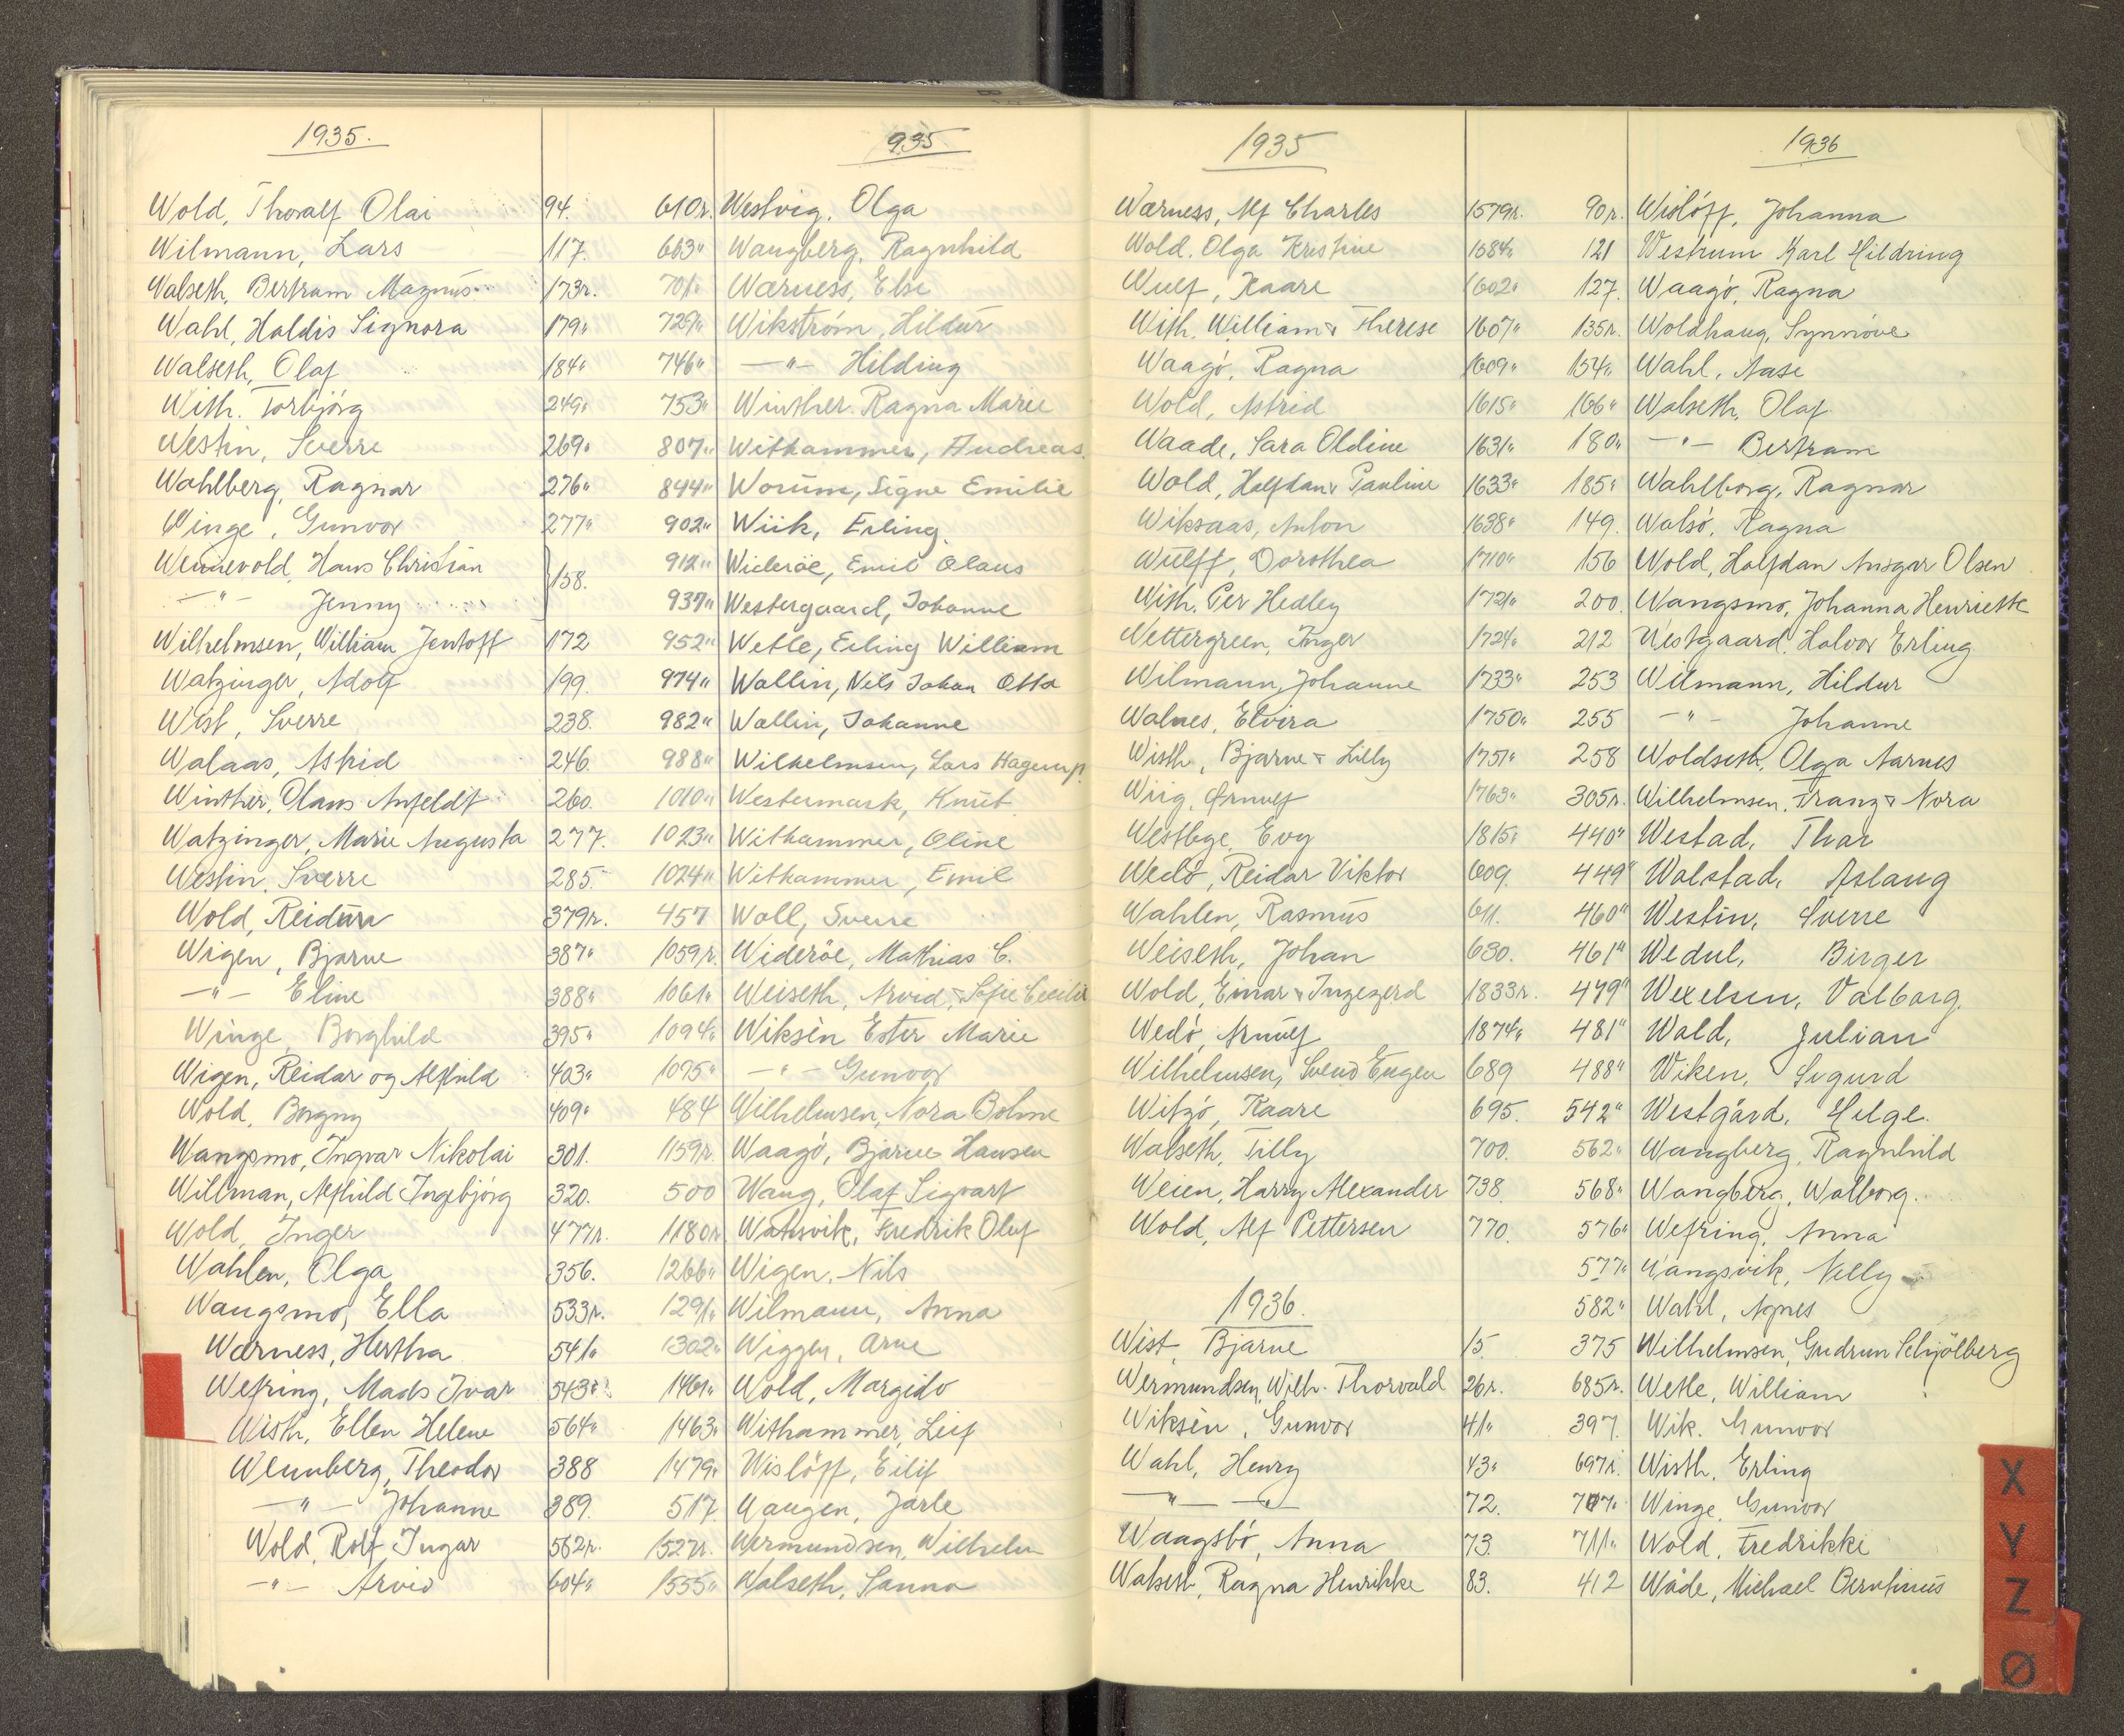 1935.
Wold, Thoralf Olai 94.
Wilmann, Lars 117.
Walseth, Bertram Magnus 173r.
Wahl, Haldis Signora 179"
Walseth, Olaf 184"
With. Torbjörg 249"
Westin, Sverre 269"
Wahlberg, Ragnar 276"
Winge, Gunvor 277"
Wennevold, Hans Christian
—"— Jenny 158.
Wilhelmsen, William Jentoft 172
Watzinger, Adolf 199.
Wist, Sverre 238.
Walaas, Astrid 246.
Winther, Olaus Anfeldt 260.
Watzinger, Marie Augusta 277.
Westin, Sverre 285.
Wold, Reidura 379r.
Wigen, Bjarne 387"
—"— Eline 388"
Winge, Borghild 395"
Wigen, Reidar og Alfhild 403"
Wold, Borgny 409"
Wangsmo, Ingvar Nikolai 301.
Willman, Alfhild Ingebjörg 320.
Wold, Inger 477r.
Wahlen, Olga 356.
Wangsmo, Ella 533r.
Wærness, Hertha 541"
Wefring, Mads Ivar 543"
Wisth, Ellen Helene 564"
Wennberg, Theodor 388
—"— Johanne 389.
Wold, Rolf Ingar 562r.
—"— Arvid 604"
935
610r. Westvig, Olga
663" Wangberg, Ragnhild
701" Wærness, Else
729" Wikström, Hildur
746" —"— Hilding
753" Winther. Ragna Marie
807" Withammer, Andreas.
844" Worum, Signe Emilie
902" Wiik, Erling.
912" Wideröe, Emil Olaus
937" Westergaard, Johanne
952" Wetle, Erling William
974" Wallin, Nils Johan Otto
982" Wallin, Johanne
988" Wilhelmsen, Lars Hagerup.
1010" Westermark, Knut
1023" Withammer, Oline
1024" Withammer, Emil
457 Woll, Sverre
1059r. Wideröe, Mathias C.
1061" Weiseth, Arvid & Sofie Cecilie
1094" Wiksèn Ester Marie
1095" —"— Gunvor
484 Wilhelmsen, Nora Bolme
1159r. Waagö, Bjarne Hansen
500 Wang, Olaf Sigvart
1180r. Watnsvik, Fredrik Oluf
1266" Wigen, Nils
1291" Wilmann, Anna
1302" Wiggen, Arne
1461" Wold, Margido
1463" Withammer, Leif
1479" Wislöff, Eilif
517 Waugen, Jarle
1527r. Wermundsen, Wilhelm
1555" Walseth, Sanna
1935
Wærness, Alf Charles 1579r.
Wold. Olga Kristine 1684"
Wulf, Kaare 1602"
With, William & Therese 1607"
Waagö, Ragna 1609"
Wold, Astrid 1615"
Waade, Sara Oldine 1631"
Wold, Halfdan & Pauline 1633"
Wiksaas, Anton 1638"
Wulff, Dorothea 1710"
With, Per Hedley 1721"
Wettergreen, Inger 1724"
Wilmann, Johanne 1733"
Walnes, Elvira 1750"
Wisth, Bjarne & Lilly 1751"
Wiig, Ørnulf 1763"
Westbye, Evy 1815"
Wedö, Reidar Viktor 609.
Wahlen, Rasmus 611.
Weiseth, Johan 630.
Wold, Einar & Ingegerd 1833r.
Wedö, Arnulf 1874"
Wilhelmsen, Svend Eugen 689
Witzö, Kaare 695.
Walseth, Tilly 700.
Weien, Harry Alexander 738.
Wold, Alf Pettersen 770.
1936.
Wist, Bjarne 15.
Wermundsen, Wilh. Thorvald 26r.
Wiksèn, Gunvor 41"
Wahl, Henry 43"
—"— —"— 72.
Waagsbö, Anna 73.
Walseth, Ragna Henrikke 83.
1936
90r. Wislöff, Johanna
121 Westrum Karl Hildring
127. Waagö, Ragna
135r. Woldhaug, Synnöve
154" Wahl, Aase
166" Walseth, Olaf
180" —"— Bertram
185" Wahlberg, Ragnar
149. Walsö, Ragna
156 Wold, Halfdan Ansgar Olsen
200. Wangsmo, Johanna Henriette
212 Westgaard, Halvor Erling
253 Wilmann, Hildur
255 —"— Johanne
258 Woldseth, Olga Aarnes
305r. Wilhelmsen, Franz & Nora
440" Westad, Thor
449" Walstad, Aslaug
460" Westin, Sverre
461" Wedul, Birger
479" Wexelsen, Valborg.
481" Wald, Julian
488" Wiken, Sigurd
542" Westgård, Helge.
562" Wangberg, Ragnhild
568" Wangberg, Walborg.
576" Wefring, Anna
577" Wangsvik, Nelly
582" Wahl, Agnes
375 Wilhelmsen, Gudrun Schjölberg
685r. Wetle, William
397. Wik. Gunvor
697r. Wisth, Erling
707" Winge, Gunvor
711" Wold, Fredrikke
412 Wåde, Michael Berntinus
X
Y
Z
Ø